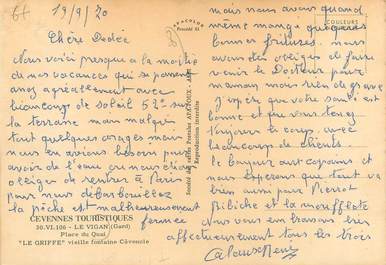 19/9/70
Chère Dédée
Nous voici presque à la moitié
de nos vacances qui se passent
assez agréablement avec
beaucoup de soleil 52° sur
la terrasse mais malgré
tout quelques orages mais
nous en avions besoin pour
avoir de l'eau sinon
obligés de rentrer à Paris
pour nous débarbouiller
la pêche est malheureusement
fermée
CEVENNES TOURISTIQUES
30.VI.106 - LE VIGAN (Gard)
Place du Quai
"LE GRIFFE" vieille fontaine Cévenole
APACOLOR
Procédé 61
Société des cartes Postales APA-POUX - ALBI
Reproduction interdite
COULEURS
mais nous avons quand
même mangé quelques
bonnes fritures. nous
avons été obligés de faire
venir le Docteur pour
maman mais rien de grave
J'espère que votre santé est
bonne et que vous tenez
toujours le coup avec
beaucoup de clients.
le bonjour aux copains et
nous espérons que tout va
bien aussi pour Pierrot
Bibiche et la
Nous vous embrassons bien
affectueusement tous les trois